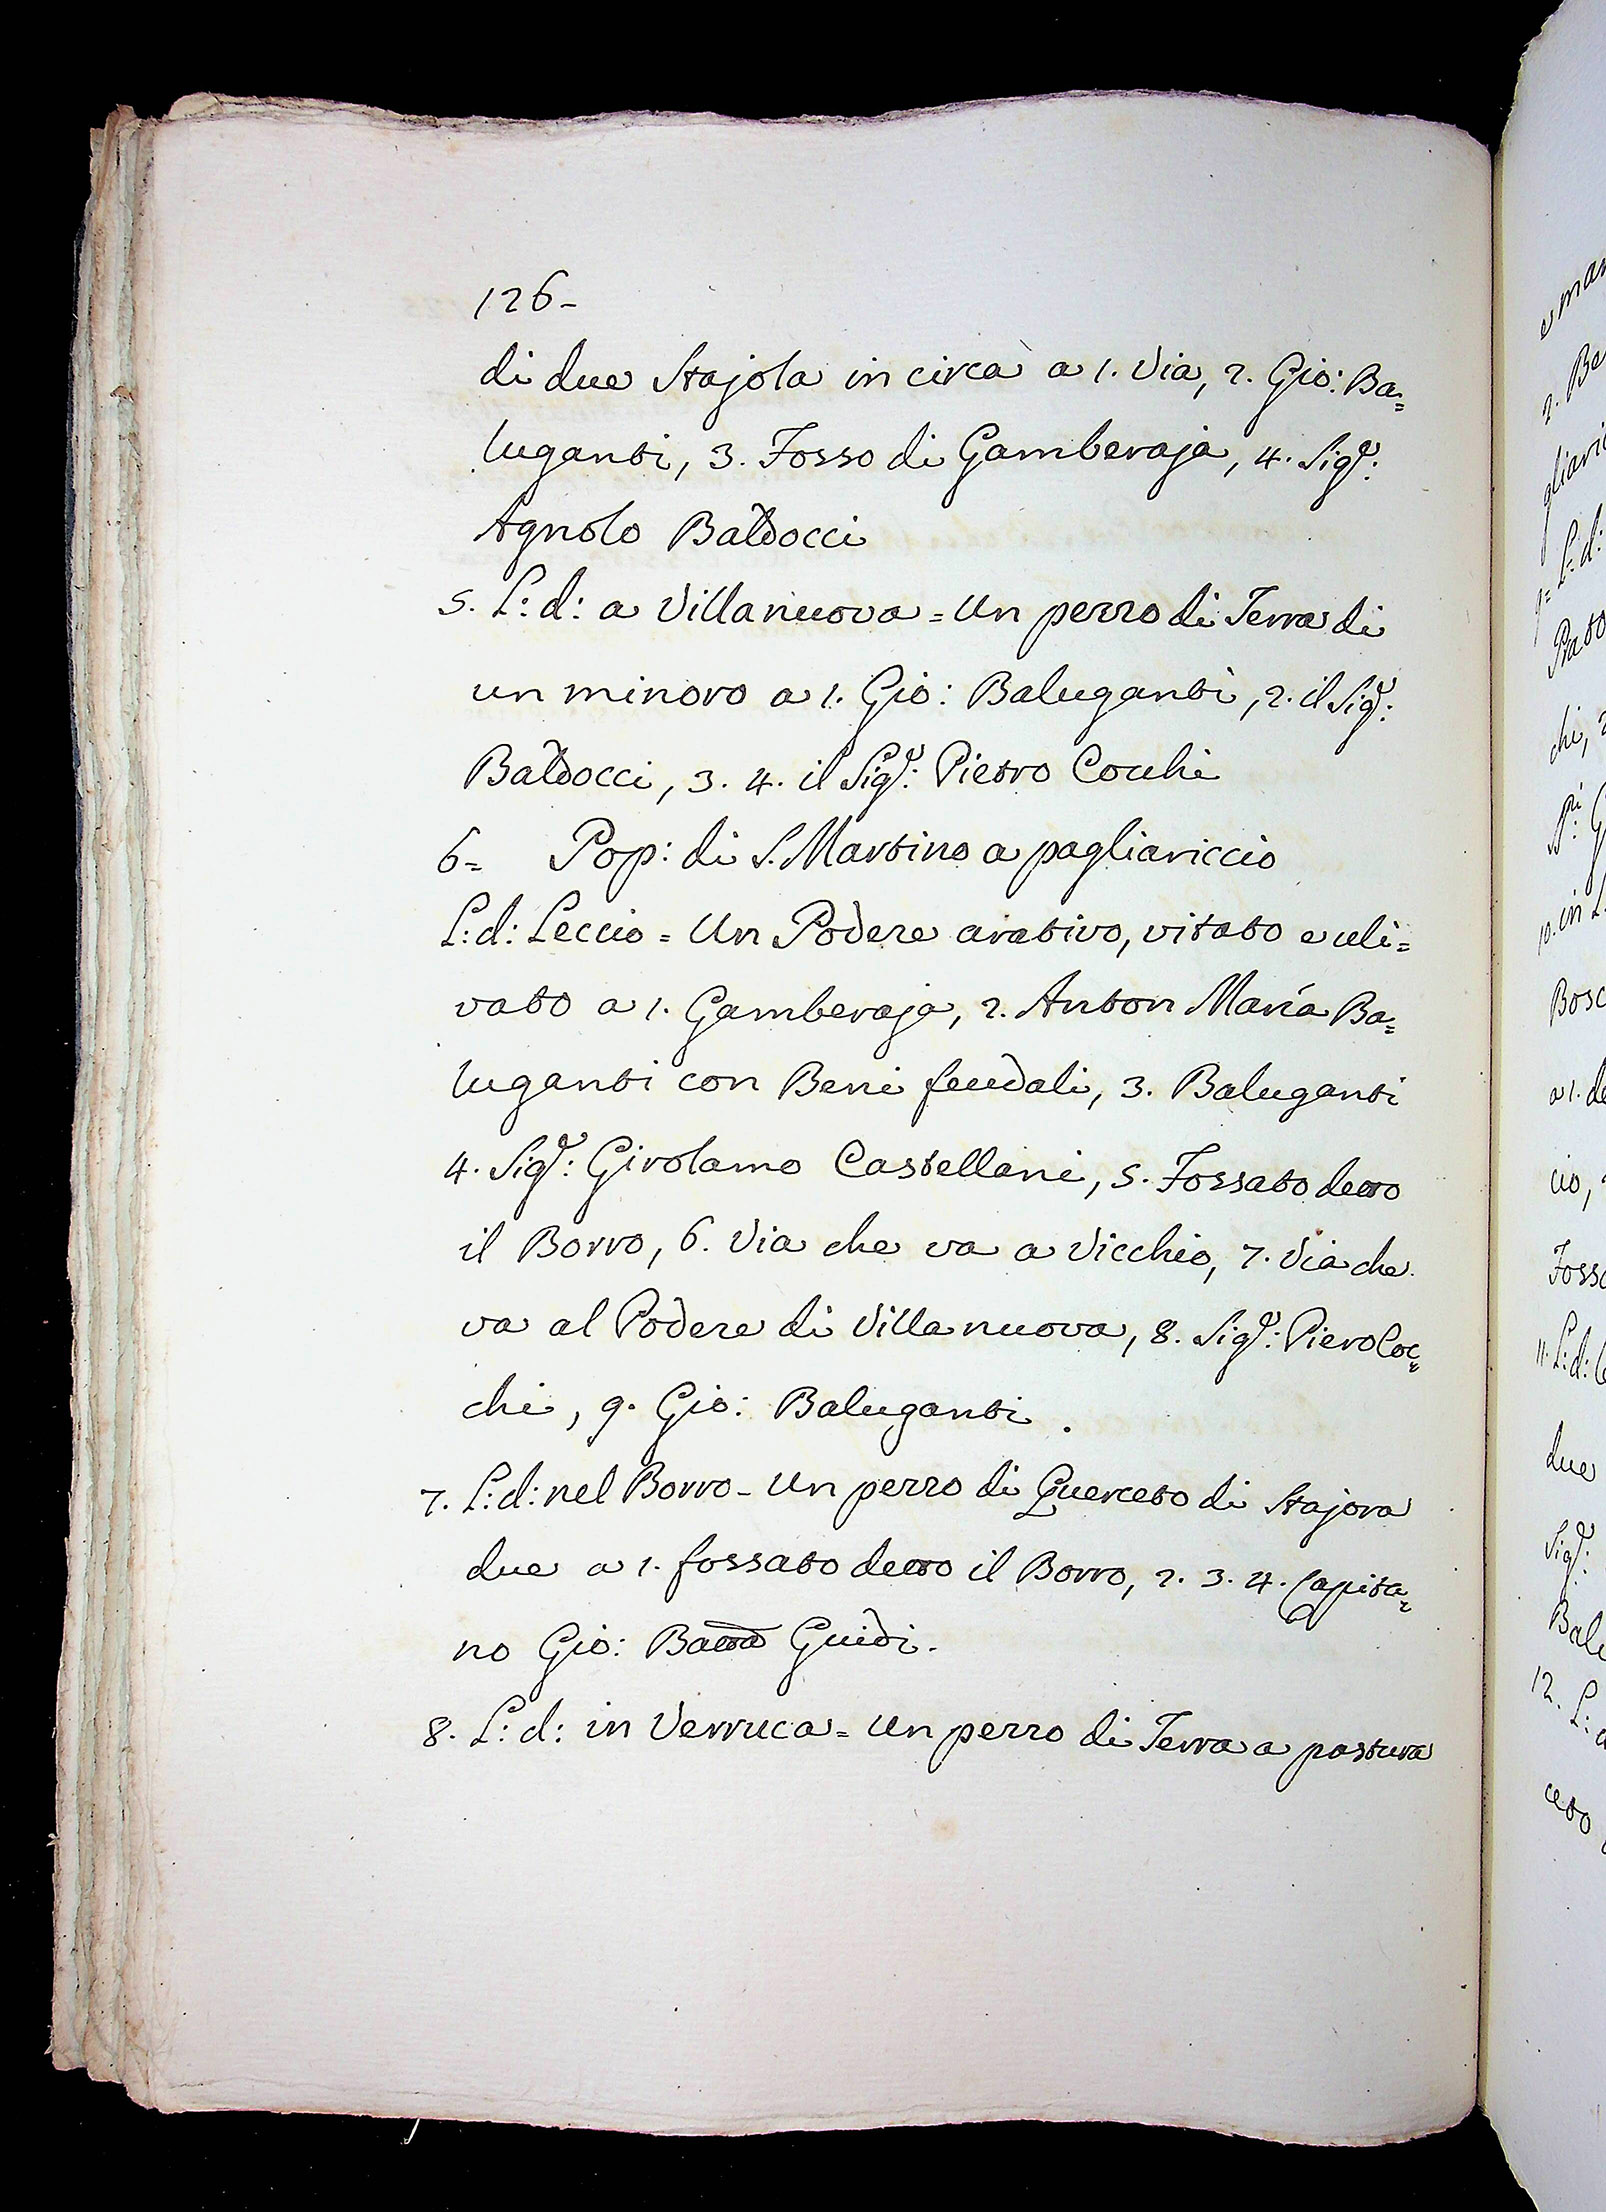 126-
di due Stajola in circa a 1. Via, 2. Gio: Ba=
luganti, 3. Fosso di Gamberaja, 4. Sig.e:
Agnolo Baldocci
5. L: d: a Villanuova = Un pezzo di Terra di
un minoro a 1. Gio: Baluganti, 2. il Sig.e:
Baldocci, 3. 4. il Sig.e: Pietro Cocchi
6= Pop: di S. Martino a pagliariccio
L: d: Leccio = Un Podere arativo, vitato e uli=
vato a 1. Gamberaja, 2. Anton Maria Ba=
luganti con Beni feudali, 3. Baluganti
4. Sig.e: Girolamo Castellani, 5. Fossato detto
il Borro, 6. Via che va a Vicchio, 7. Via che
va al Podere di Villanuova, 8. Sig.e: Piero Coc=
chi, 9. Gio: Baluganti.
7. L: d: nel Borro - Un pezzo di Querceto di Stajora
due a 1. fossato detto il Borro, 2. 3. 4. Capita=
no Gio: Batta Guidi.
8. L: d: in Verruca = Un pezzo di Terra a pastura
e man
2. Ba
gliari
9= L: d:
Prato
chi, 2
10. in L
Bosc
a 1. de
cio,
Foss
11. L: d:
due
Sig.e:
Bal
12. L:
ceto